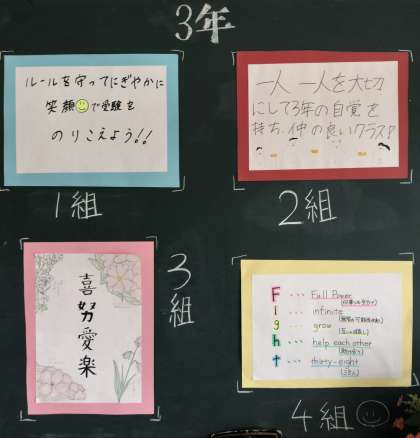 3年
ルールを守ってにぎやかに
笑顔で受験を
のりこえよう!!
1組
一人一人を大切
にして3年の自覚を
持ち、仲の良いクラス!
2組
喜
努
愛
楽
3組
F ・・・ Full Power
i ・・・ infinite
g ・・・ grow
h ・・・ help each other
t ・・・ thirty-eight
4組